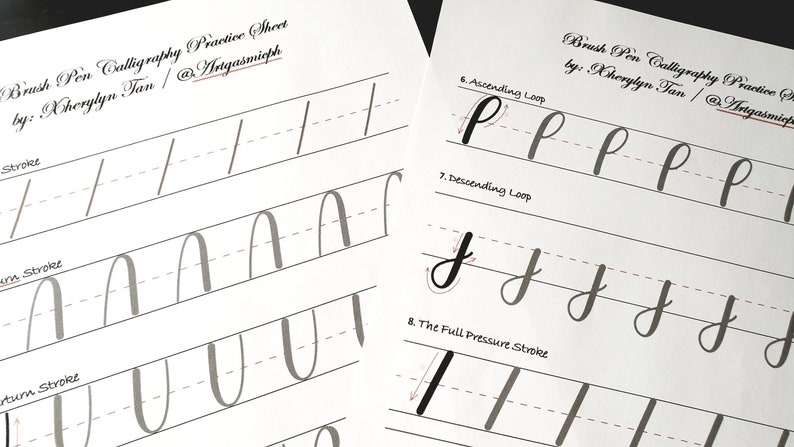 Brush Pen Calligraphy Practice Sheet
by: Xherylyn Tan / @Artgasmicph
Stroke
Stroke
Stroke
Brush Pen Calligraphy Practice Sheet
by: Xherylyn Tan / @Artgasmicph
6. Ascending Loop
7. Descending Loop
8. The Full Pressure Stroke